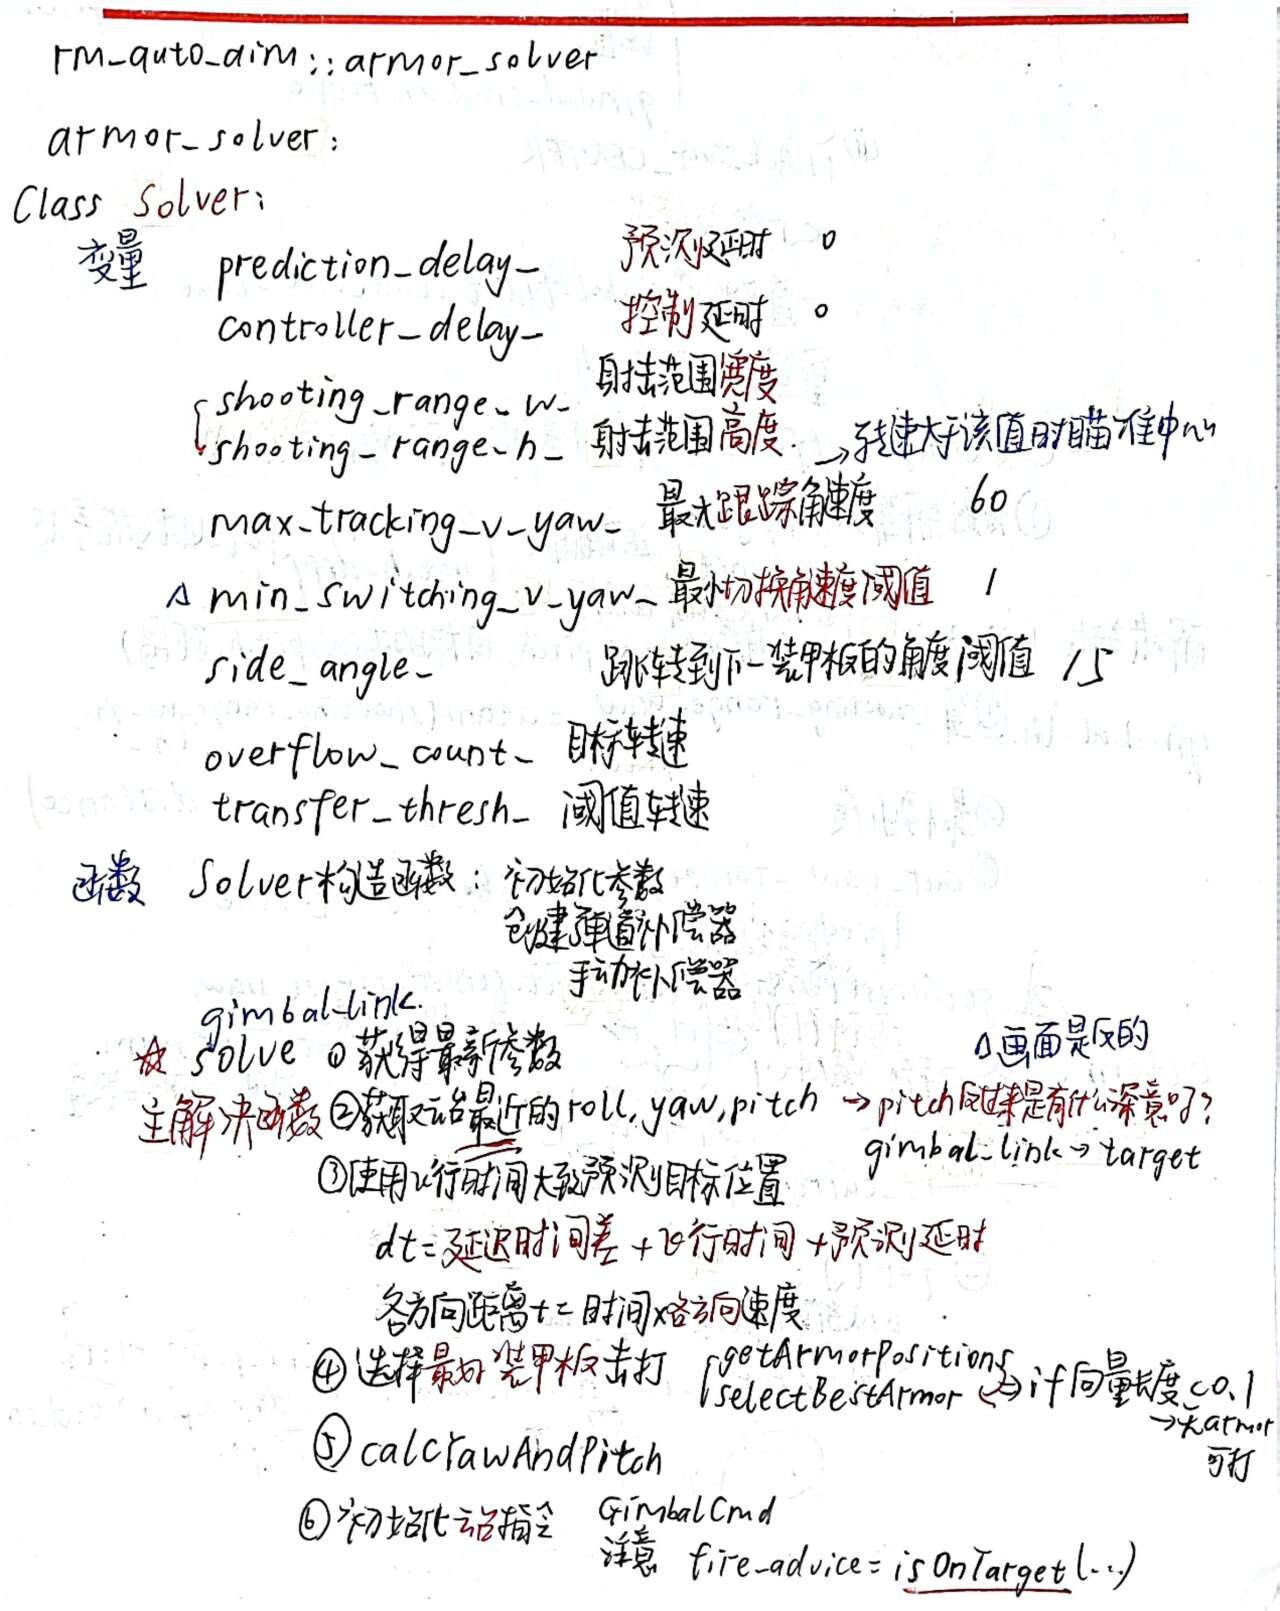 rm_auto_aim::armor_solver
armor_solver:
Class Solver:
变量 prediction_delay_ 预测延时 0
controller_delay_ 控制延时 0
shooting_range_w_ 射击范围宽度
shooting_range_h_ 射击范围高度 →转速大于该值时瞄准中心
max_tracking_v_yaw_ 最大跟踪角速度 60
△ min_switching_v_yaw_ 最小切换角速度阈值 1
side_angle_ 跳转到下一装甲板的角度阈值 15
overflow_count_ 目标转速
transfer_thresh_ 阈值转速
函数 Solver构造函数: 初始化参数
创建弹道补偿器
手动补偿器
gimbal_link.
☆ solve ①获得最新参数 △画面是反的
主解决函数 ②获取云台最近的roll,yaw,pitch →pitch反过来是有什么深意吗?
gimbal_link→target
③使用飞行时间大致预测目标位置
dt=延迟时间差+飞行时间+预测延时
各方向距离+=时间×各方向速度
④选择最好装甲板击打 getArmorPositions
selectBestArmor →if向量长度<0.1
→无armor
可打
⑤calcYawAndPitch
⑥初始化云台指令 GimbalCmd
注意 fire_advice=isOnTarget(...)